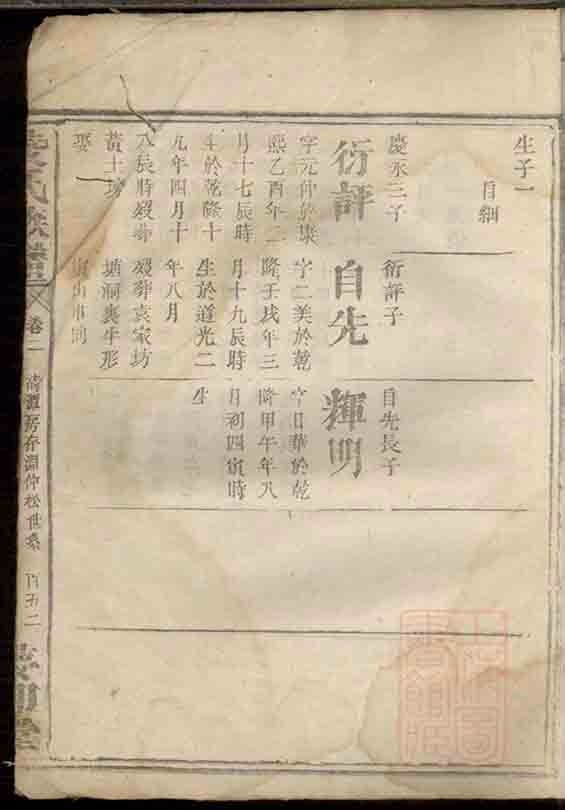 生子一
自綱
慶永三子
衍評
字元仲於康
熙乙酉年二
月十七辰時
生於乾隆十
九年四月十
八辰時歿葬
黃土塝
娶
衍評子
自先
字二美於乾
隆壬戌年三
月十九辰時
生於道光二
年八月
歿葬袁家坊
塘洞裏牛形
自先長子
輝明
字日華於乾
隆甲午年八
月初四寅時
生
氏族譜
卷二
清潭房存淵仲松世系
百五二